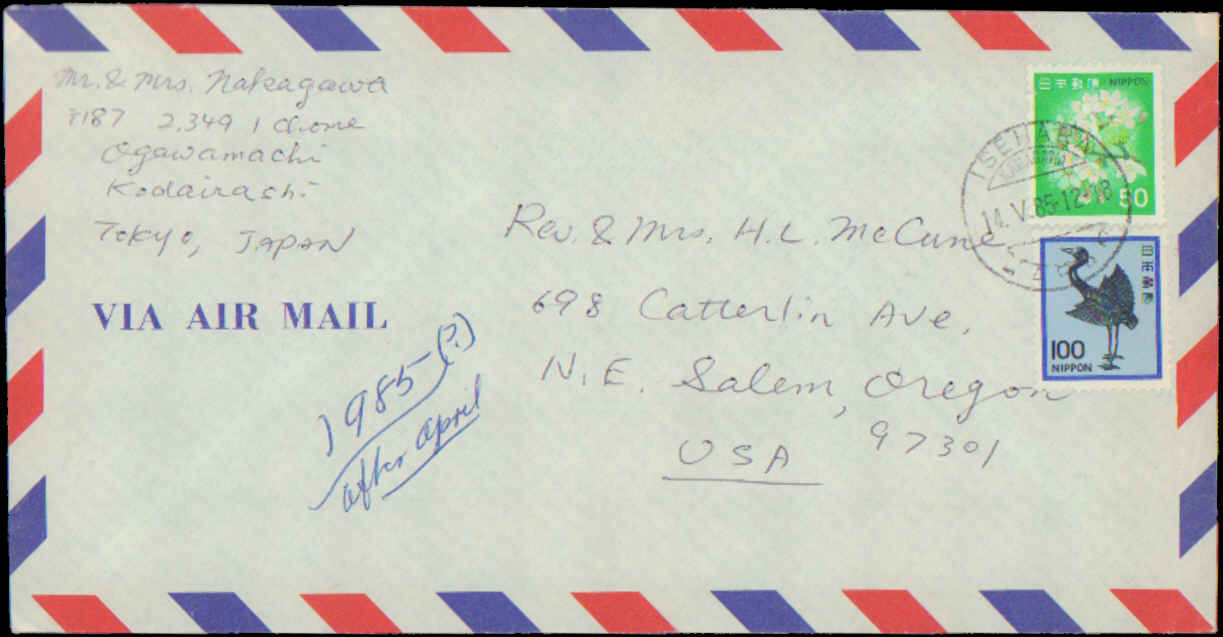 Mr. & Mrs. Nakagawa
〒187 2,349 1 Chome
Ogawamachi
Kodairashi
Tokyo, JAPAN
VIA AIR MAIL
1985(?)
after april
日本郵便 NIPPON
50
ISEHARA
14.V.85.12-18
日本郵便
100
NIPPON
Rev. & Mrs. H.L. McCune
698 Catterlin Ave.
N.E. Salem, Oregon
97301
USA